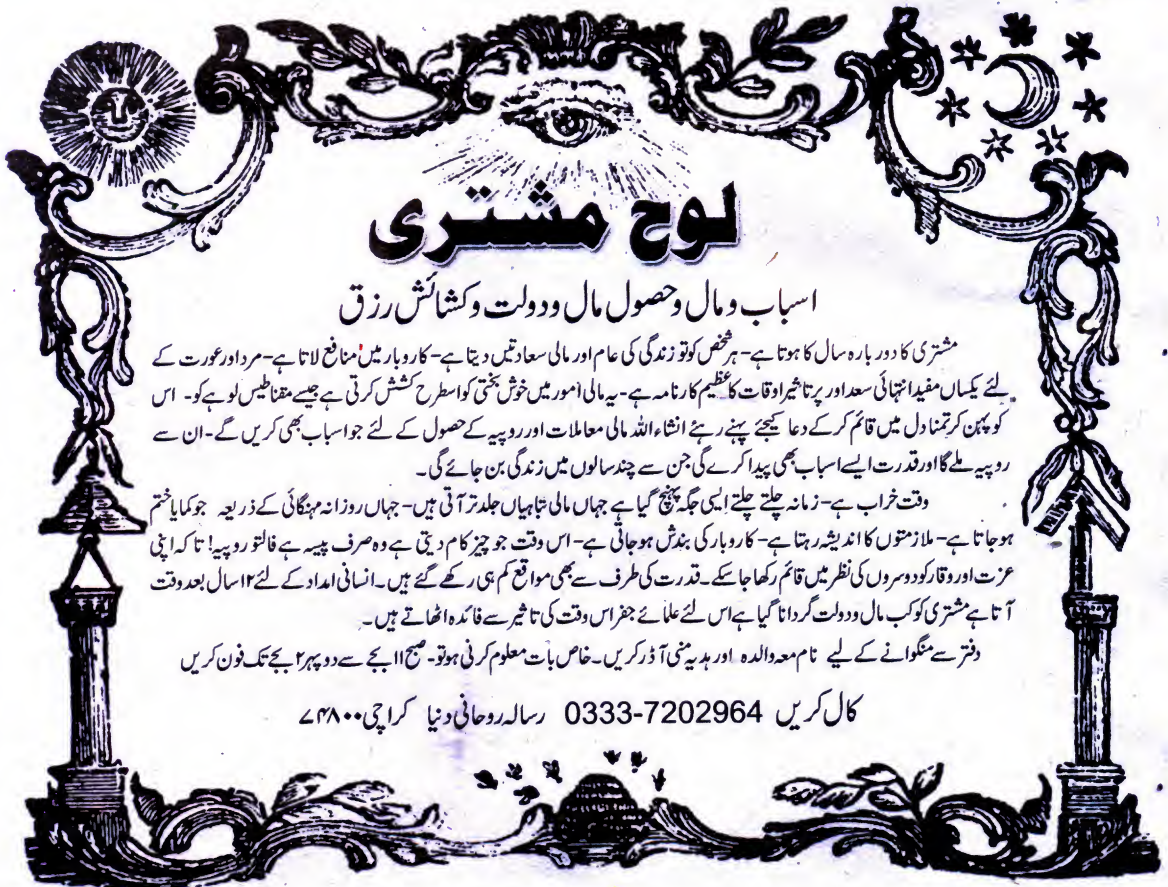 لوح مشتری
اسباب و مال و حصول مال و دولت و کشائش رزق
مشتری کا دور بارہ سال کا ہوتا ہے- ہر شخص کو تو زندگی کی عام اور مالی سعادتیں دیتا ہے- کاروبار میں منافع لاتا ہے- مرد اور عورت کے
لئے یکساں مفید انتہائی سعد اور پر تاثیر اوقات کا عظیم کارنامہ ہے- یہ مالی امور میں خوش بختی کو اسطرح کشش کرتی ہے جیسے مقناطیس لوہے کو- اس
کو پہن کر تمنا دل میں قائم کر کے دعا کیجئے پہنے رہئے انشاء اللہ مالی معاملات اور روپیہ کے حصول کے لئے جو اسباب بھی کریں گے- ان سے
روپیہ ملے گا اور قدرت ایسے اسباب بھی پیدا کرے گی جن سے چند سالوں میں زندگی بن جائے گی۔
وقت خراب ہے- زمانہ چلتے چلتے ایسی جگہ پہنچ گیا ہے جہاں مالی تباہیاں جلد تر آتی ہیں- جہاں روزانہ مہنگائی کے ذریعہ جو کمایا ختم
ہو جاتا ہے- ملازمتوں کا اندیشہ رہتا ہے- کاروبار کی بندش ہو جاتی ہے- اس وقت جو چیز کام دیتی ہے وہ صرف پیسہ ہے فالتو روپیہ! تا کہ اپنی
عزت اور وقار کو دوسروں کی نظر میں قائم رکھا جا سکے۔ قدرت کی طرف سے بھی مواقع کم ہی رکھے گئے ہیں۔ انسانی امداد کے لئے ۱۲ سال بعد وقت
آتا ہے مشتری کو کب مال و دولت گردانا گیا ہے اس لئے علمائے جفر اس وقت کی تاثیر سے فائدہ اٹھاتے ہیں۔
دفتر سے منگوانے کے لیے نام معہ والدہ اور ہدیہ منی آڈر کریں۔ خاص بات معلوم کرنی ہو تو- صبح ۱۱ بجے سے دوپہر ۲ بجے تک فون کریں
کال کریں 0333-7202964 رسالہ روحانی دنیا کراچی ۷۴۸۰۰